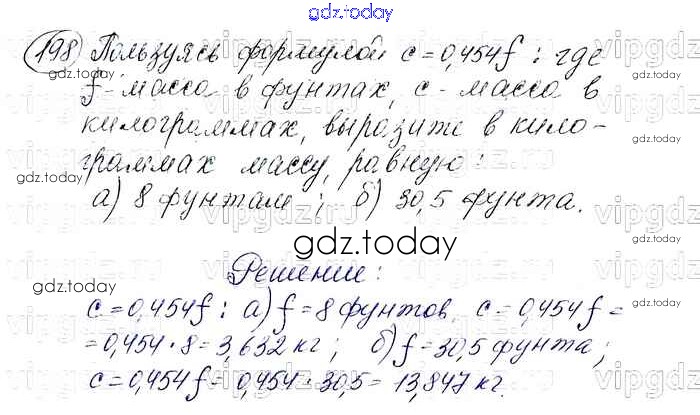 gdz.today
198 Пользуясь формулой c=0,454f : где
f - масса в фунтах, c - масса в
килограммах, выразите в кило-
граммах массу, равную:
а) 8 фунтам ; б) 30,5 фунта.
gdz.today
Решение:
c=0,454f : а) f=8 фунтов, c=0,454f=
=0,454·8=3,632 кг ; б) f=30,5 фунта;
c=0,454f=0,454·30,5=13,847 кг.
gdz.today
gdz.today
gdz.today
gdz.today
gdz.today
vipgdz
vipgdz